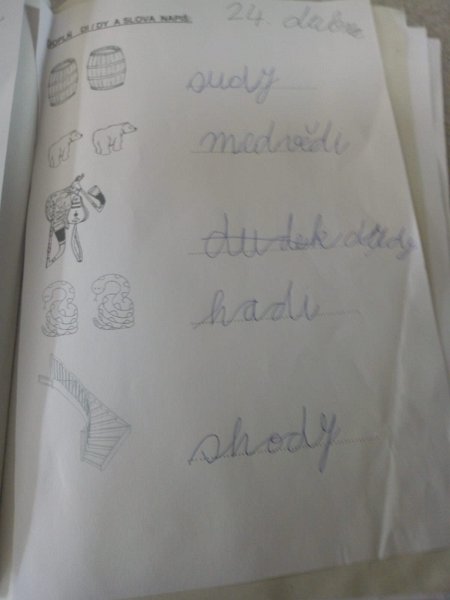 DOPLŇ DI / DY A SLOVA NAPIŠ:
24. dubna
sudy
medvědi
dudek dudy
hadi
shody